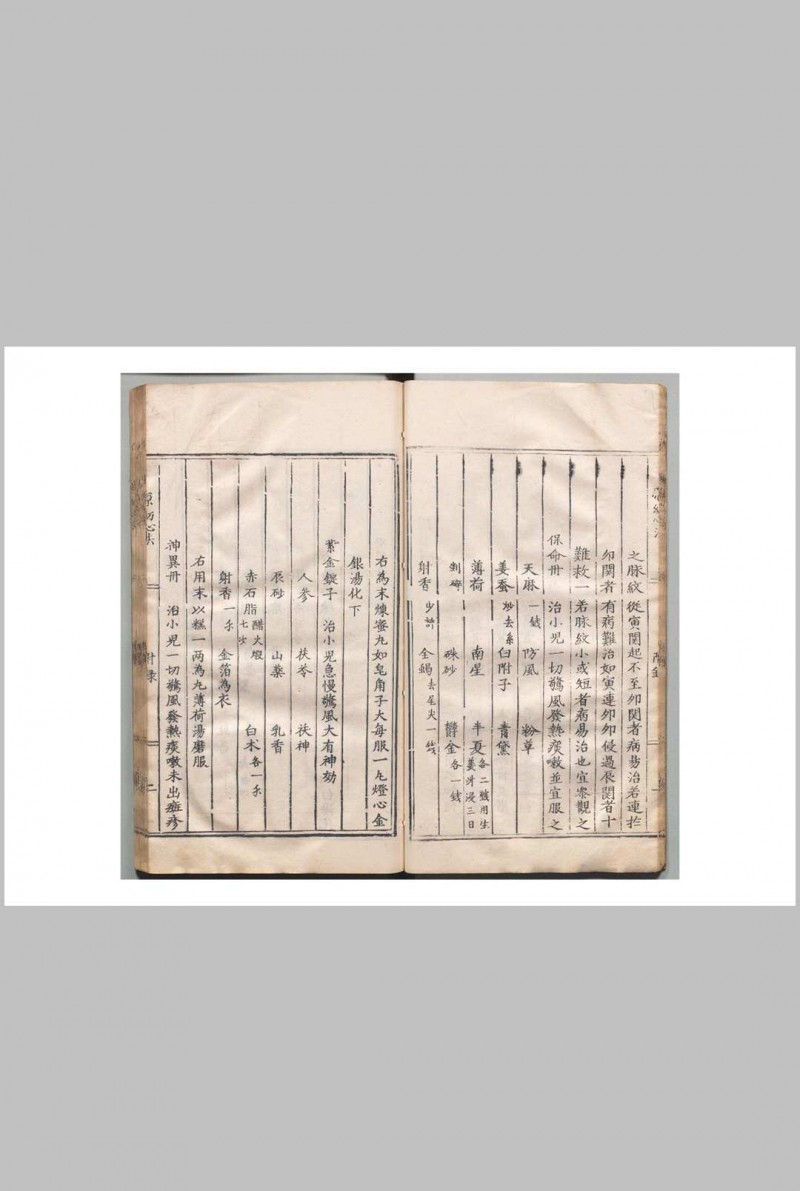 之脉紋從寅関起不至卯関者病易治若連於
卯関者有病難治如寅連卯卯侵過辰関者十
難救一若脉紋小或短者病易治也宜察觀之
保命丹 治小兒一切驚風發熱痰嗽並宜服之
天麻一錢 防風 粉草
姜蚕炒去系 白附子 青黛
薄荷 南星 半夏各二錢用生姜浸三日
硃砂 欝金各一錢
射香少許 全蝎去尾尖一錢
右為末煉蜜丸如皂角子大每服一丸燈心金
銀湯化下
紫金錠子 治小兒急慢驚風大有神効
人參 茯苓 茯神
辰砂 山藥 乳香
赤石脂醋火煅七次 白术各一錢
射香一錢 金箔為衣
右用末以糕一两為丸薄荷湯磨服
神異丹 治小兒一切驚風發熱痰嗽未出癍疹
附錄
二